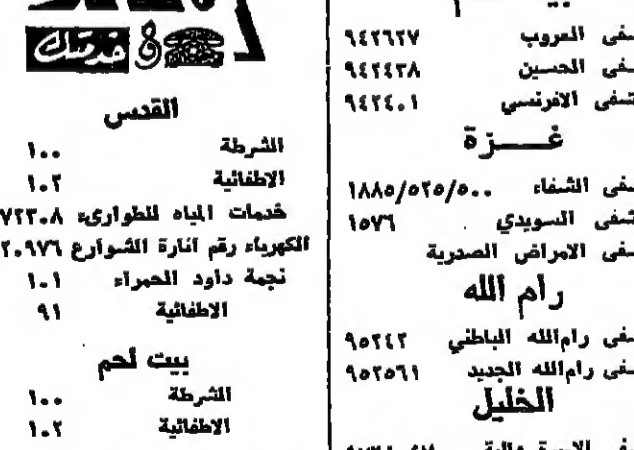 في خدمتك
القدس
الشرطة ١٠٠
الاطفائية ١٠٢
خدمات المياه للطوارىء ٧٢٣٠٨
الكهرباء رقم انارة الشوارع ٢٠٩٧٦
نجمة داود الحمراء ١٠١
الاطفائية ٩١
بيت لحم
الشرطة ١٠٠
الاطفائية ١٠٢
العروب ٩٤٢٦٢٧
الحسين ٩٤٢٤٢٨
الافرنسي ٩٤٢٤٠١
غـــزة
الشفاء ١٨٨٥/٥٢٥/٥٠٠
السويدي ١٥٧٦
الامراض الصدرية
رام الله
رام‌الله الباطني ٩٥٢٤٢
رام‌الله الجديد ٩٥٢٥٦١
الخليل